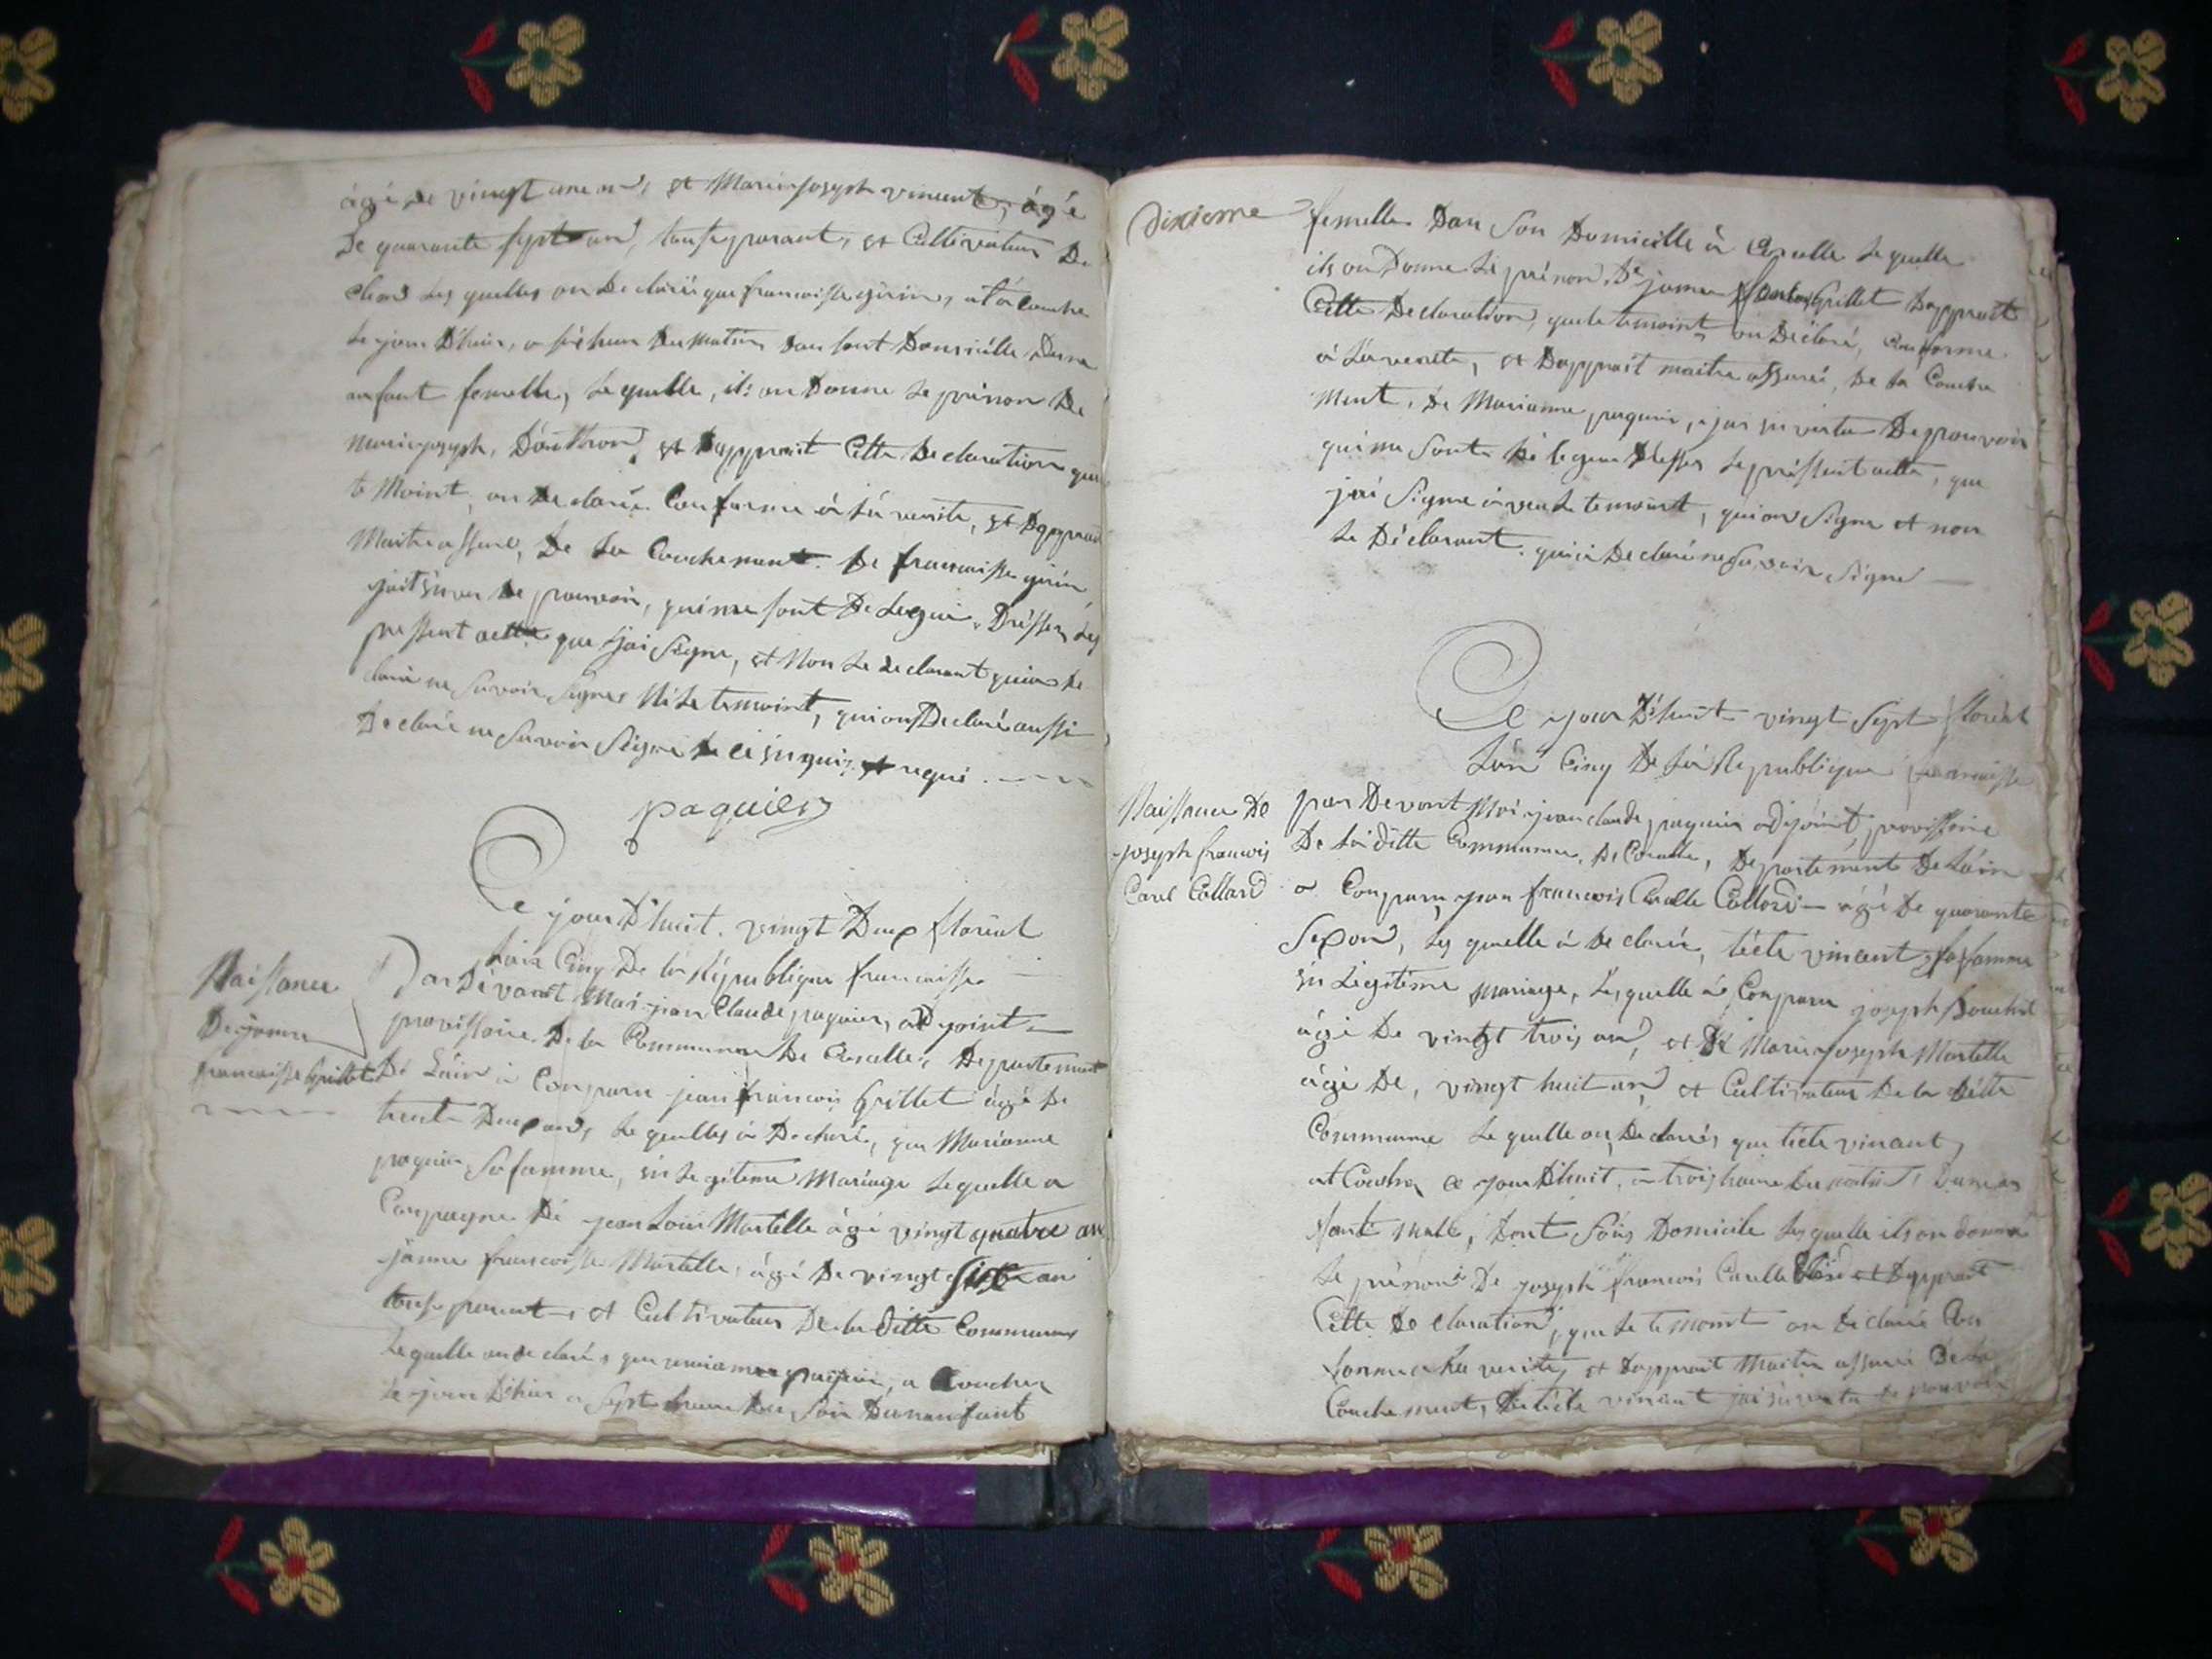 âgé de vingt une ans, et Marie joseph vincent, âgé
De quarante sept an, tout parant, et Cultivateur De
les quelles on Declaré que francoisse girin, at a Couche
Le jour D'hier, a sis heur Du Matin dan sont Domicille D'une
anfant femelle, Le quelle, ils on Donne Le prénon De
Marie joseph, et Dapprait Cette Declaration que
te Moint, on De claré Conforme â la verite, et Dapprait
Maitre assuré, De La Couchement De francoisse girin
jait De pouvoir, qui me sont De Legue, Dresser Les
pressent acte que j'ai Signe, et Non Le declarant qui a De
claré ne Savoir Signer Ni Le temoint, qui on Declaré aussi
De claré ne Savoir Signe De ce et requi
paquier
Ce jour D'huit vingt Deux floréal
Lain Cinq De la République francoisse
Naissance
De janne
francoisse Grillet
Par Devant Moi jean Claude paquier, adjoint
provissoire De la Commune De Coroelle, Departement
De Lain a Comparu jean francois Grillet âgé De
trente Deux ans, Le quelles a Declaré, que Marianne
paquier Sa famme, in Legiteme Mariage Le quelle a
Compagne De jean Louis Martelle âgé vingt quatre an
janne francoisse Martelle, âgé De vingt six an
tous parant, et Cultivateur De la ditte Commune
Le quelle on declaré que mariamne paquier, a Coucher
Le jour D'hier a Sept heure Du Soir D'une anfant
Dixieme
femelle Dan Son Domicille â Coroelle Le quelle
ils on Donne Le prénon De janne Grillet Dapprait
Cette Declaration, que le temoint on Déclaré, Conforme
â La verite, et Dapprait maitre assuré, De La Couche
Ment, De Marianne paquier, j'ai in vertu De pouvoir
qui me Sont Dé legue Dresser Le pressent acte, que
j'ai Signe avec Le temoint, qui on Signe et non
Le Déclarant qui a Declaré ne Savoir Signé
Ce jour D'huit vingt Sept floréal
Lan Cinq De La Republique francoisse
Naissance De
joseph francois
Carel Collard
par Devant Moi jean claude paquier adjoint, provissoire
De La ditte Commune, De Coroelle, Departement De Lain
a Comparu jean francois Carelle Collard âgé De quarante
Six an, Les quelle a De claré, técle vincent, sa famme
in Legitime Mariage, Les quelle a Comparu joseph
âgé De vingt trois an, et De Marie joseph Martelle
âgé De, vingt huit an, et Cultivateur De la Ditte
Commune Le quelle on, Declaré, que técle vincent,
at Couche ce jour D'huit, a trois heure Du matin, D'un an
fant male, Dont Sous Domicile Les quelle ils on donné
Le prénon De joseph francois Carelle et Dapprait
Cette De claration, que Le temoint on Declaré Con
forme a La verite, et Dapprait Maitre assuré De La
Couchement, De técle vincent j'ai in vertu de pouvoir